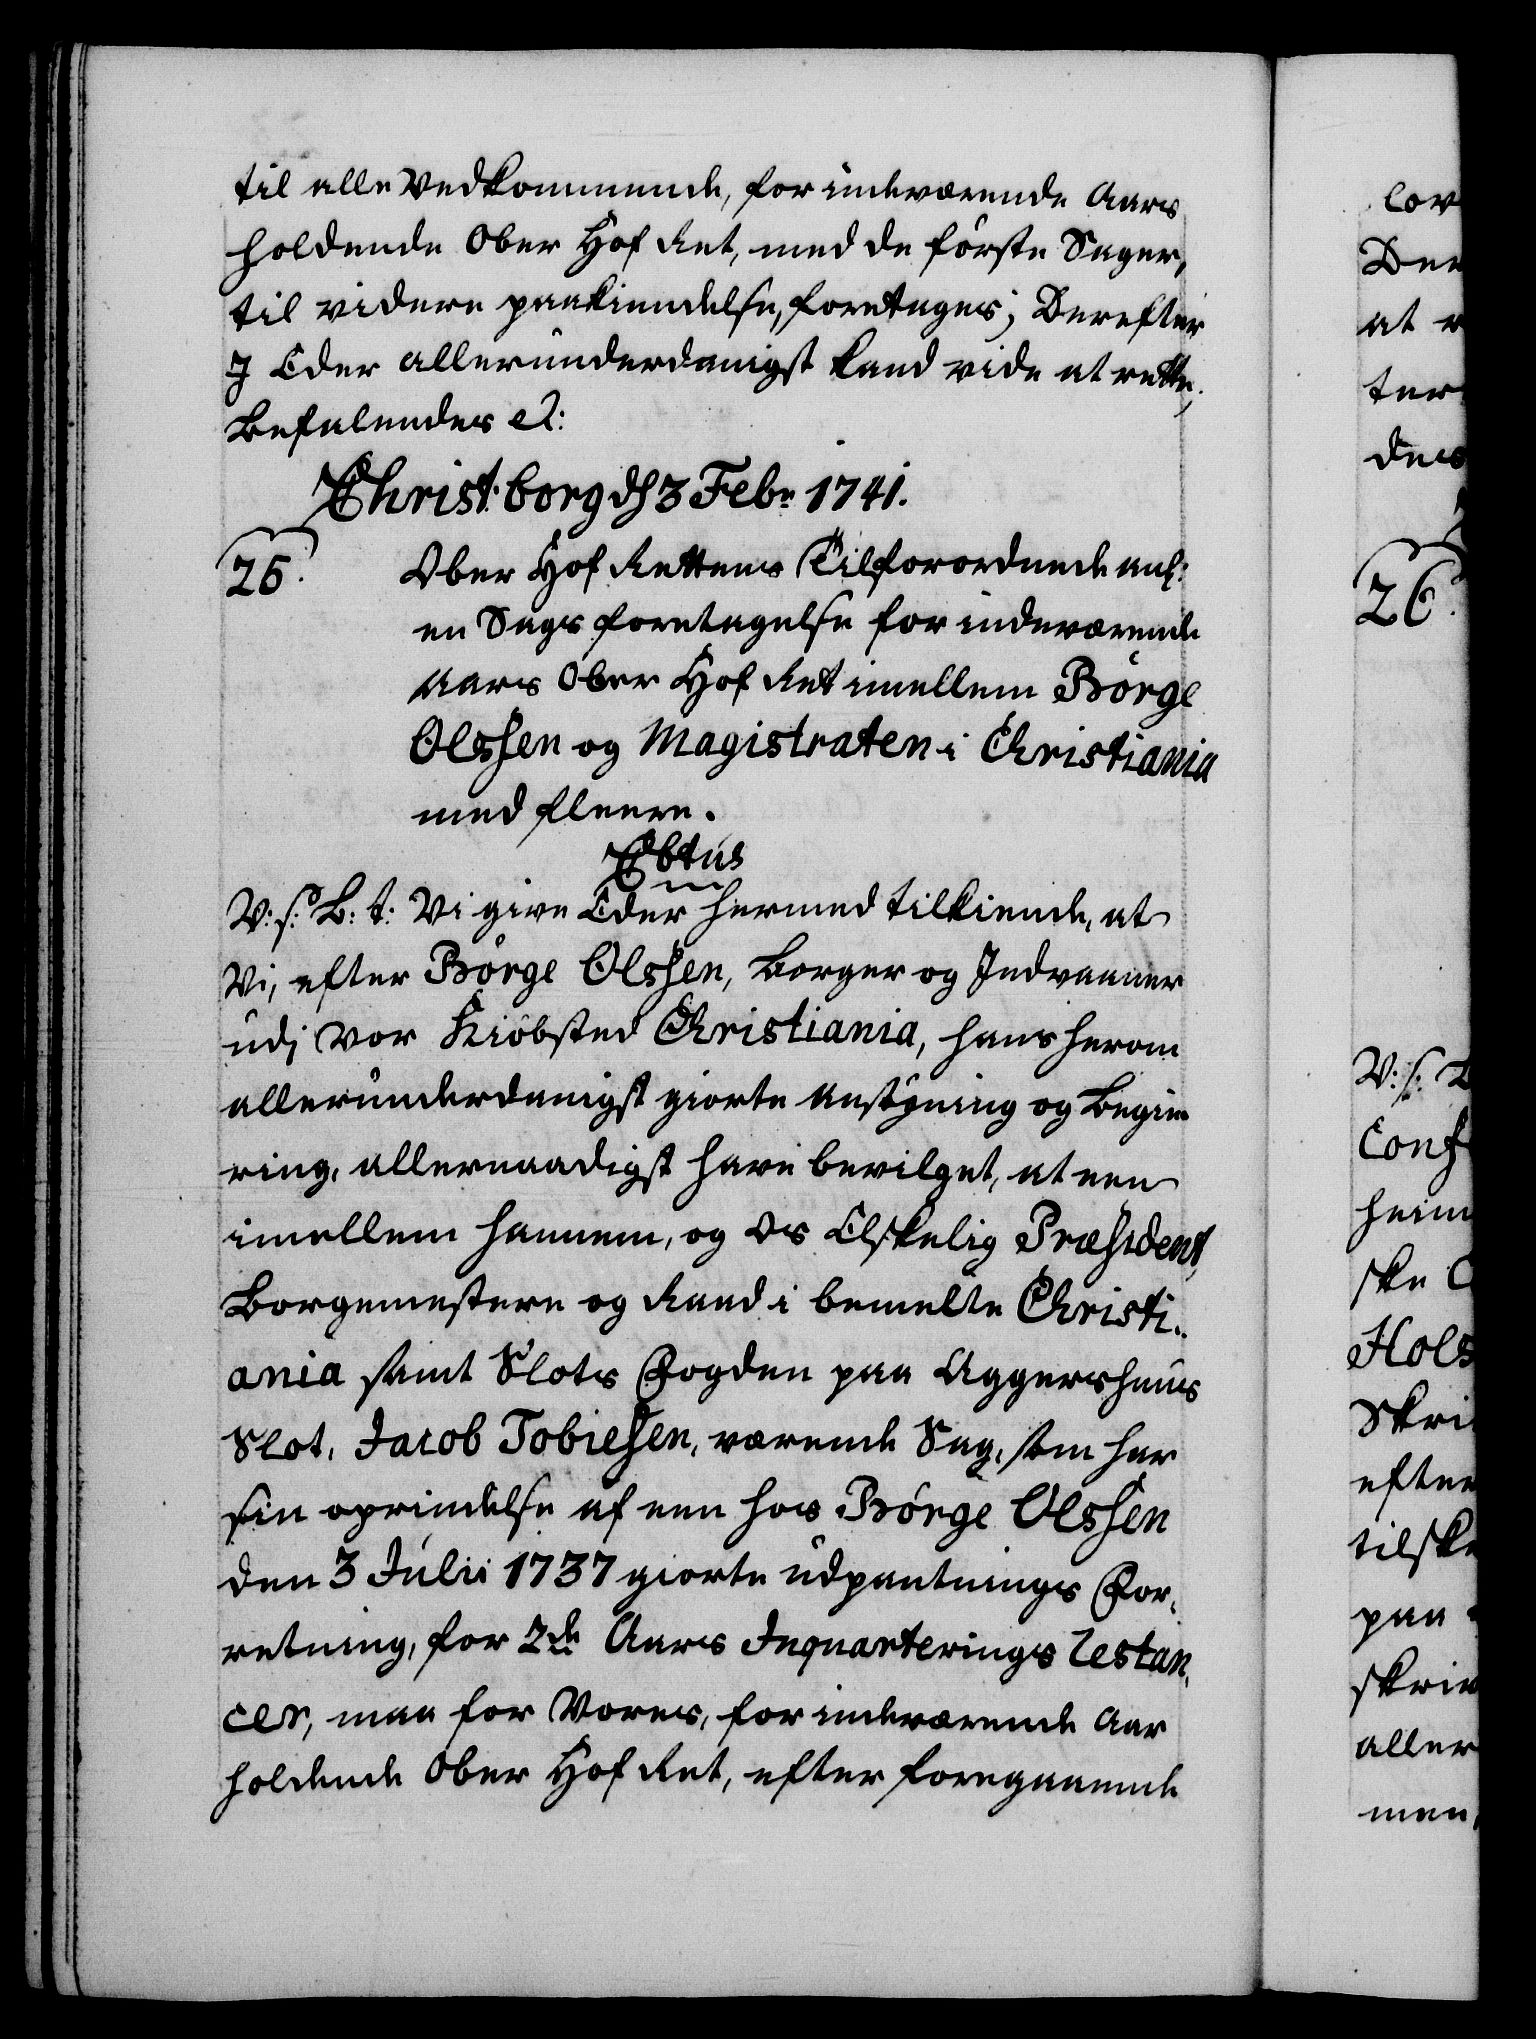 til alle Vedkommende, for indeværende Aars
holdende Ober Hof Ret, med de første Sager,
til videre paakiendelse, foretages; Derefter
I Eder allerunderdanigst kand vide at rette,
Befalendes etc:
Christ:borg d. 3 Febr 1741.
25.
Ober Hof Rettens Tilforordnede anl:
en Sags foretagelse for indeværende
Aars Ober Hof Ret imellem Børge
Olssen og Magistraten i Christiania
med fleere.
V: s: B: t: Vi give Eder hermed tilkiende, at
Vi, efter Børge Olssen, Borger og Indvaaner
udj Vor Kiøbsted Christiania, hans herom
allerunderdanigst giorte Ansøgning og Begie-
ring, allernaadigst have bevilget, at een
imellem hannem, og Os Elskelig Præsident,
Borgemestere og Raad i bemelte Christi-
ania samt Slots Fogden paa Aggershuus
Slot, Jacob Tobiesen, værende Sag, som har
sin oprindelse af een hos Børge Olssen
den 3 Julii 1737 giorte udpantnings For-
retning, for 2de Aars Inqvarterings Restan-
cer, maa for Vores, for indeværende Aar
holdende Ober Hof Ret, efter foregaaende
lov
Der
at
ter
des
26.
V: s:
Conf
heim
ske
Hols
Skri
efter
tilske
paa
skriv
aller
men,